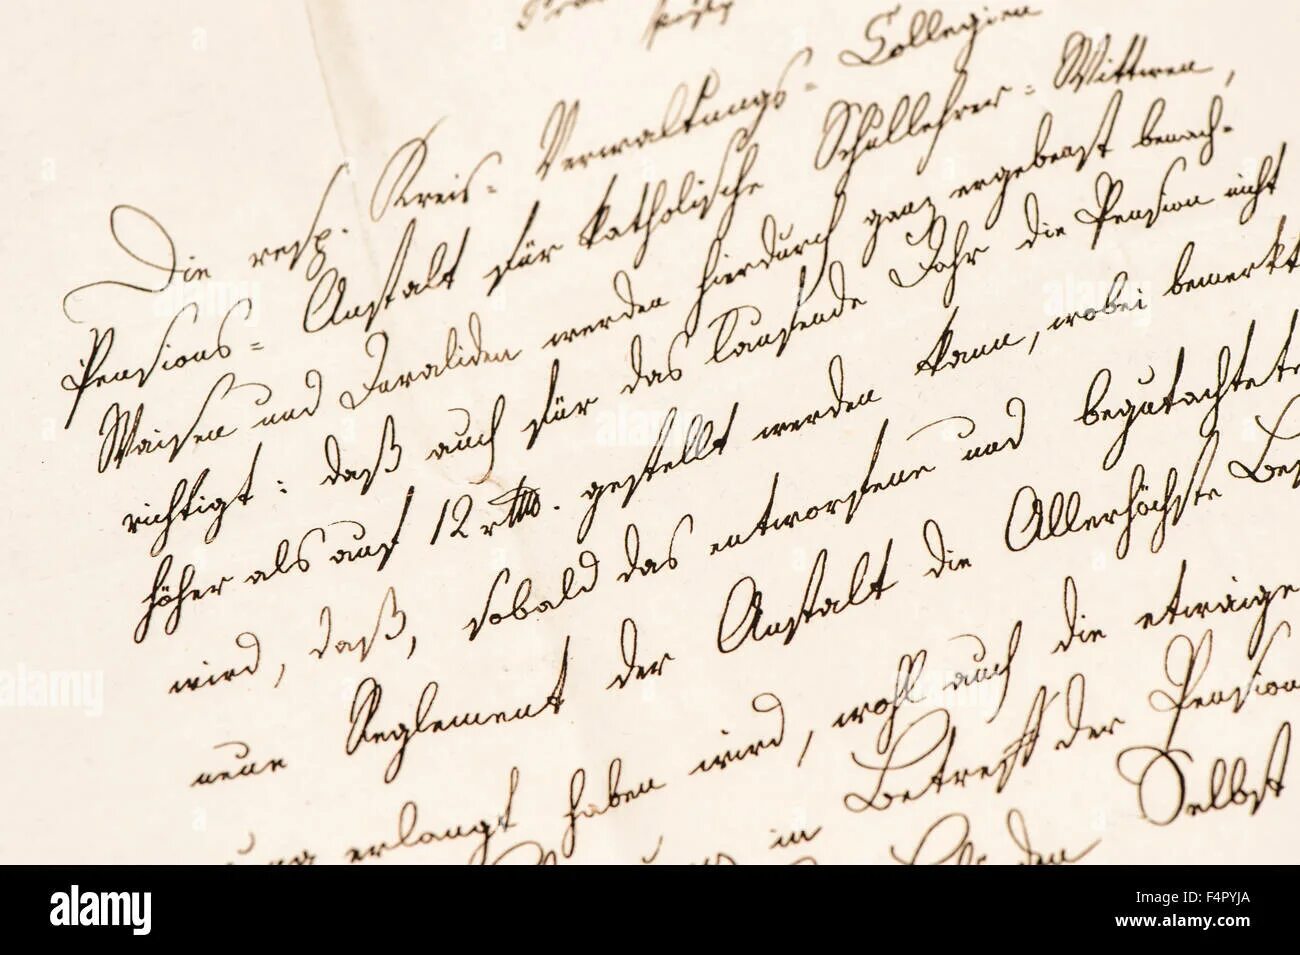 Die resp. Kreis= Verwaltungs= Collegien
Pensions= Anstalt für katholische Schullehrer= Wittwen,
Waisen und Invaliden werden hierdurch ganz ergebenst benach-
richtigt: daß auch für das laufende Jahr die Pension nicht
höher als auf 12 rtlr. gestellt werden kann, wobei bemerkt
wird, daß, sobald das entworfene und begutachtete
neue Reglement der Anstalt die Allerhöchste
erlangt haben wird, wohl auch die etwaige
in Betreff der Pension
den Selbst
alamy
Image ID: F4RYJA
www.alamy.com